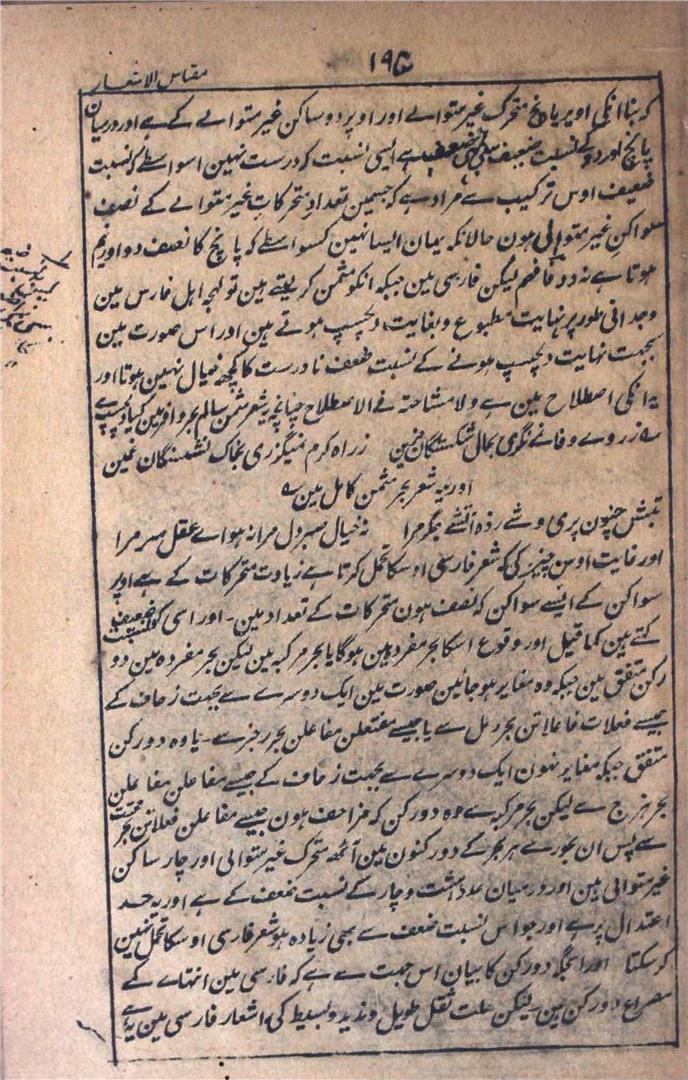 ۱۹۵
مقیاس الاشعار
کہ بنا انکی اوپر پانچ متحرک غیر متوالے اور اوپر دو ساکن غیر متوالے کے ہے اور درمیان
پانچ اور دو کے نسبت ضعیف ہے ایسی نسبت کہ درست نہین اسواسطے کہ نسبت
ضعیف اوس ترکیب سے مراد ہے کہ جسمین تعداد متحرکات غیر متوالے کے نصف
سواکن غیر متوالی ہون حالانکہ یہان ایسا نہین کسواسطے کہ پانچ کا نصف دو اور نیم
ہوتا ہے نہ دو فافہم لیکن فارسی مین جبکہ انکو مثمن کر لیتے ہین تو لہجہ اہل فارس مین
وجدانی طور پر نہایت مطبوع و بغایت دلچسپ ہوتے ہین اور اس صورت مین
بجہت نہایت دلچسپ ہونے کے نسبت ضعف نادرست کا کچھ خیال نہین ہوتا اور
یہ انکی اصطلاح مین ہے ولا مشاحتہ فے الاصطلاح چنانچہ یہ شعر مثمن سالم بحر وافر مین کیا دلچسپ ہے
؎ ز روے وفا نے نگری بحال شکستگان حزین زراہ کرم نمیگزری بخاک نشستگان غمین
اور یہ شعر بحر مثمن کامل مین ؎
تپش جنون پری وشے زدہ آتشے جگر مرا نہ خیال صبر دل مرا نہ ہواے عقل بسر مرا
اور غایت اوس چیز کی کہ شعر فارسی اوسکا تحمل کرتا ہے زیادت متحرکات کے ہے اوپر
سواکن کے ایسے سواکن کہ نصف ہون متحرکات کے تعداد مین ۔ اور اسی کو نسبت ضعیف
کہتے ہین کما قیل اور وقوع اسکا بحر مفرد مین ہوگا یا بحر مرکب مین لیکن بحر مفردہ مین دو
رکن متفق ہین جبکہ وہ مغایر ہو جائین صورت مین ایک دوسرے سے بجہت زحاف کے
جیسے فعلات فاعلاتن بحر رمل سے یا جیسے مفتعلن مفاعلن بحر رجز سے ۔ یا وہ دو رکن
متفق جبکہ مغایر نہون ایک دوسرے سے بجہت زحاف کے جیسے مفاعلن مفاعلن
بحر ہزج سے لیکن بحر مرکب سے وہ دو رکن کہ مزاحف ہون جیسے مفاعلن فعلاتن بحر مجتث
سے پس ان بحور سے ہر بحر کے دو رکنون مین آٹھ متحرک غیر متوالی اور چار ساکن
غیر متوالی ہین اور درمیان عدد ہشت و چار کے نسبت ضعف کے ہے اور یہ حد
اعتدال پر ہے اور جو اس نسبت ضعف سے بھی زیادہ ہو شعر فارسی اوسکا تحمل نہین
کر سکتا اور انجگہ دو رکن کا بیان اس جہت سے ہے کہ فارسی مین انتہا ے کے
مصراع دو رکن ہین لیکن علت ثقل طویل و مدید و بسیط کی اشعار فارسی مین یہ ہے